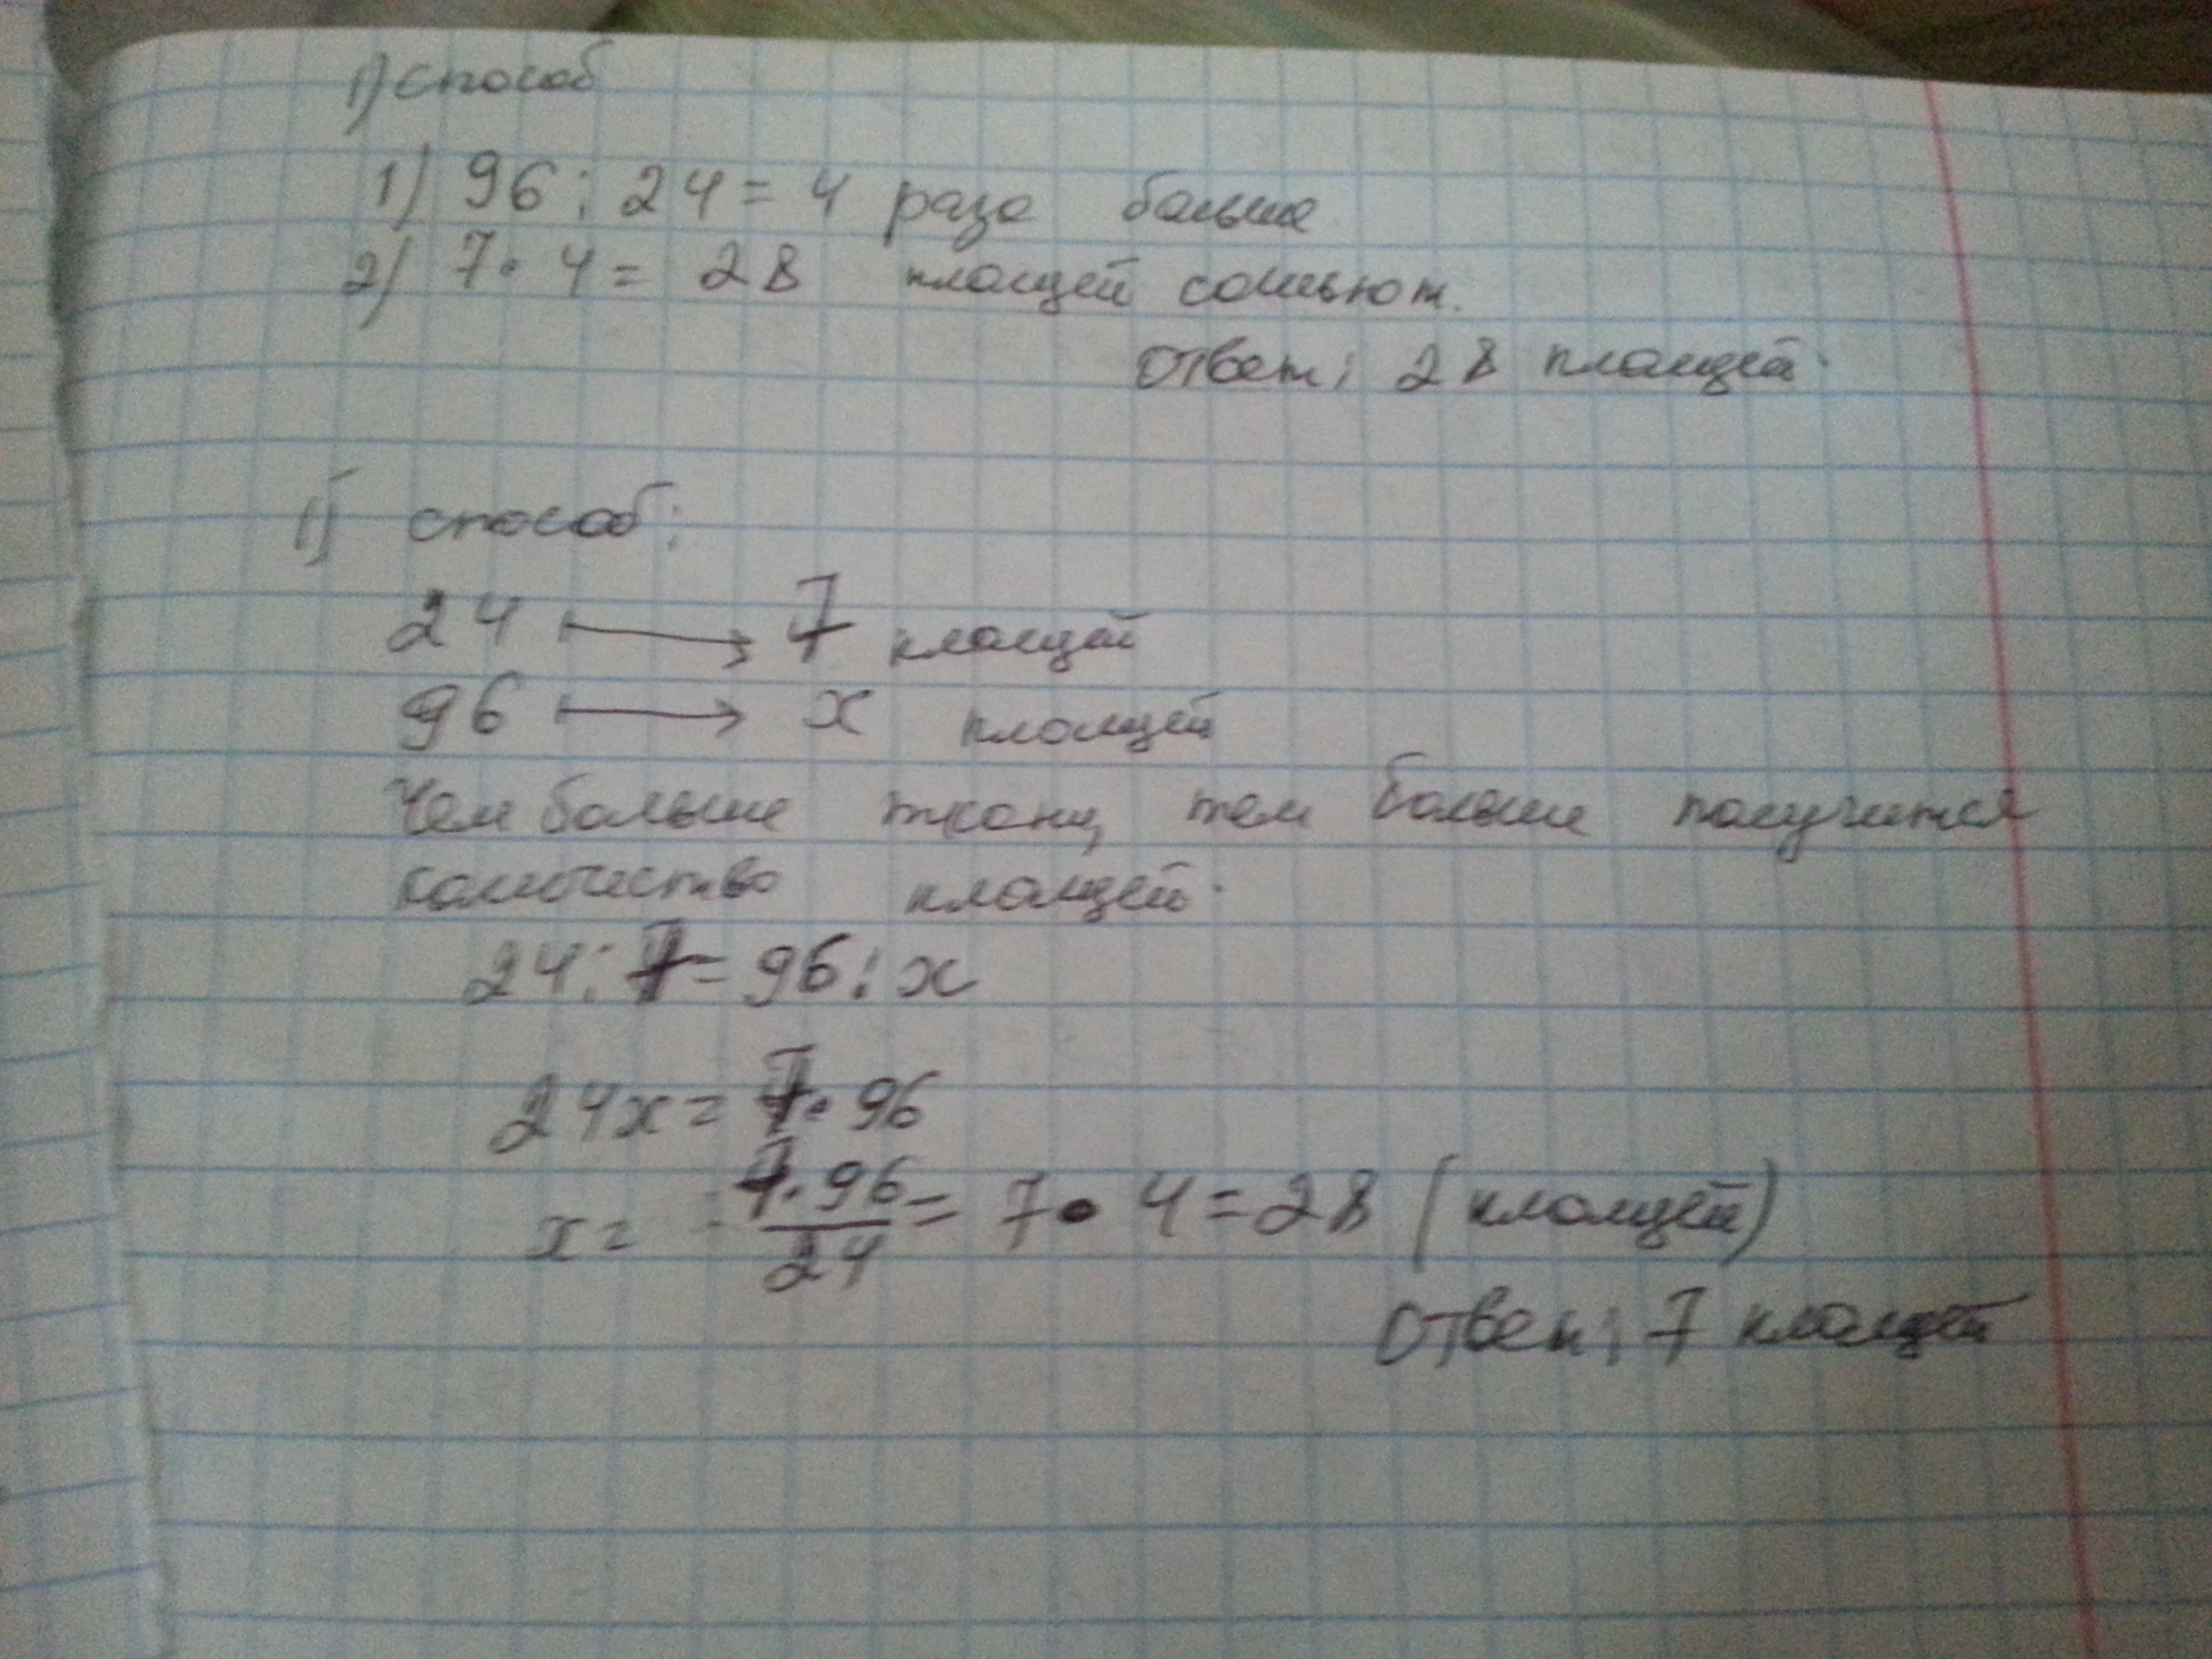 I) способ
1) 96 : 24 = 4 раза больше
2) 7 · 4 = 28 плащей сошьют.
Ответ: 28 плащей.
II способ:
24 ↦ 7 плащей
96 ↦ x плащей
Чем больше ткани, тем больше получится
количество плащей.
24 : 7 = 96 : x
24x = 7 · 96
x = 7 · 96 / 24 = 7 · 4 = 28 (плащей)
Ответ: 7 плащей